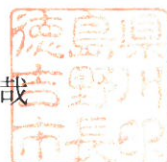 徳島県
哉
吉野川
市長印